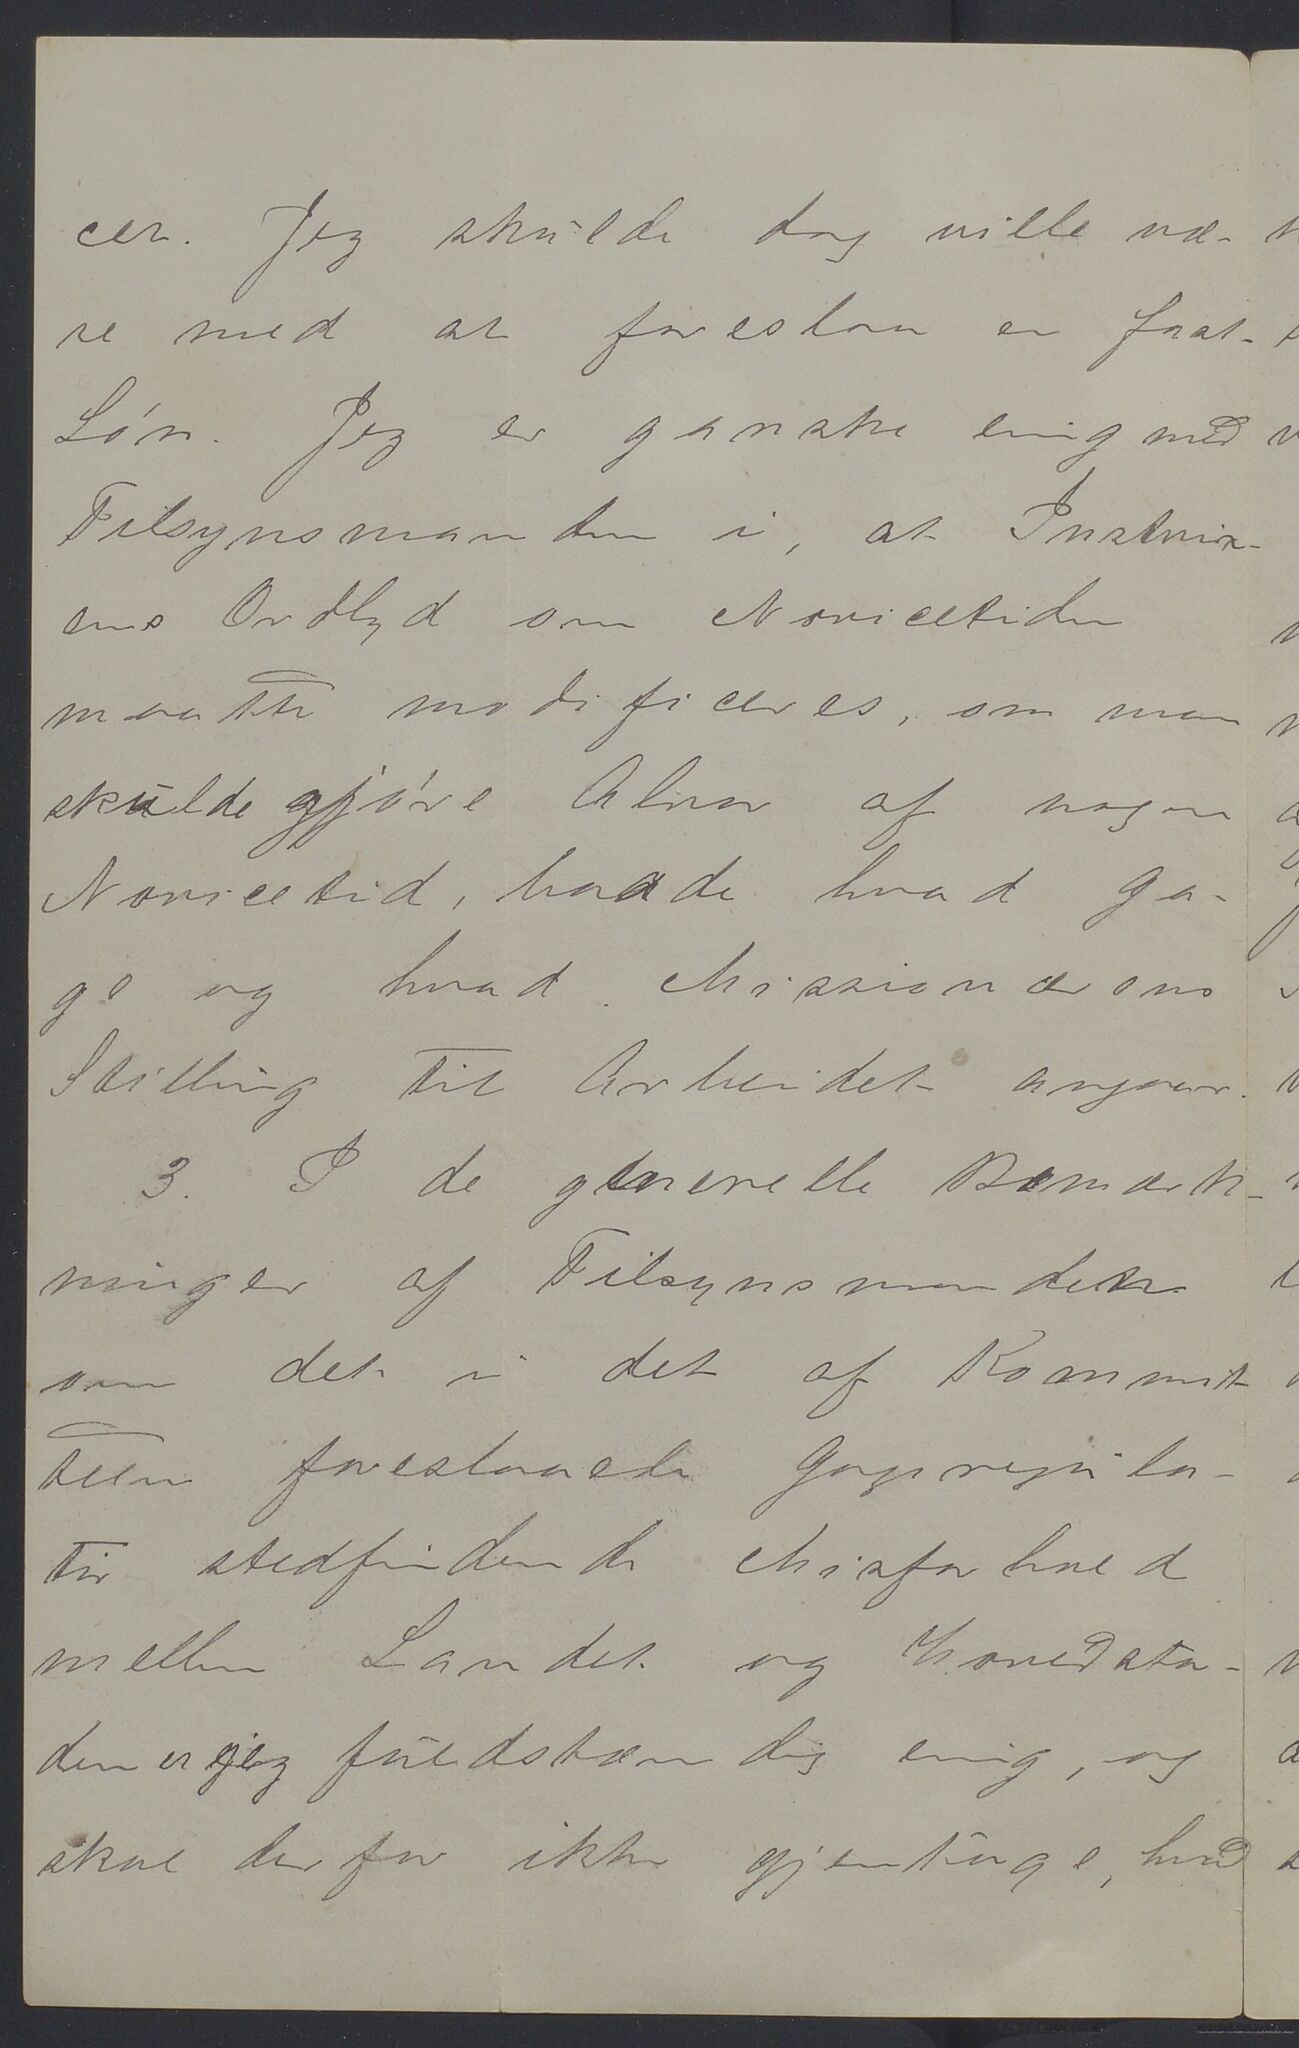 cer. Jeg skulde dog ville væ-
re med at foreslaa en fast
Løn. Jeg er ganske enig med
Tilsynsmanden i, at Instrux-
ens Ordlyd om Novicetiden
maatte modificeres, om man
skulde gjøre Alvor af nogen
Novicetid, baade hvad Ga-
ge og hvad Missionærens
Stilling til Arbeidet angaar.
3. I de generelle Bemærk-
ninger af Tilsynsmanden
om det i det af Kommit
teen foreslaaede Gageregula-
tiv stedfindende Misforhold
mellem Landet og Hovedsta-
den er jeg fuldstændig enig, og
skal derfor ikke gjentage, hvad